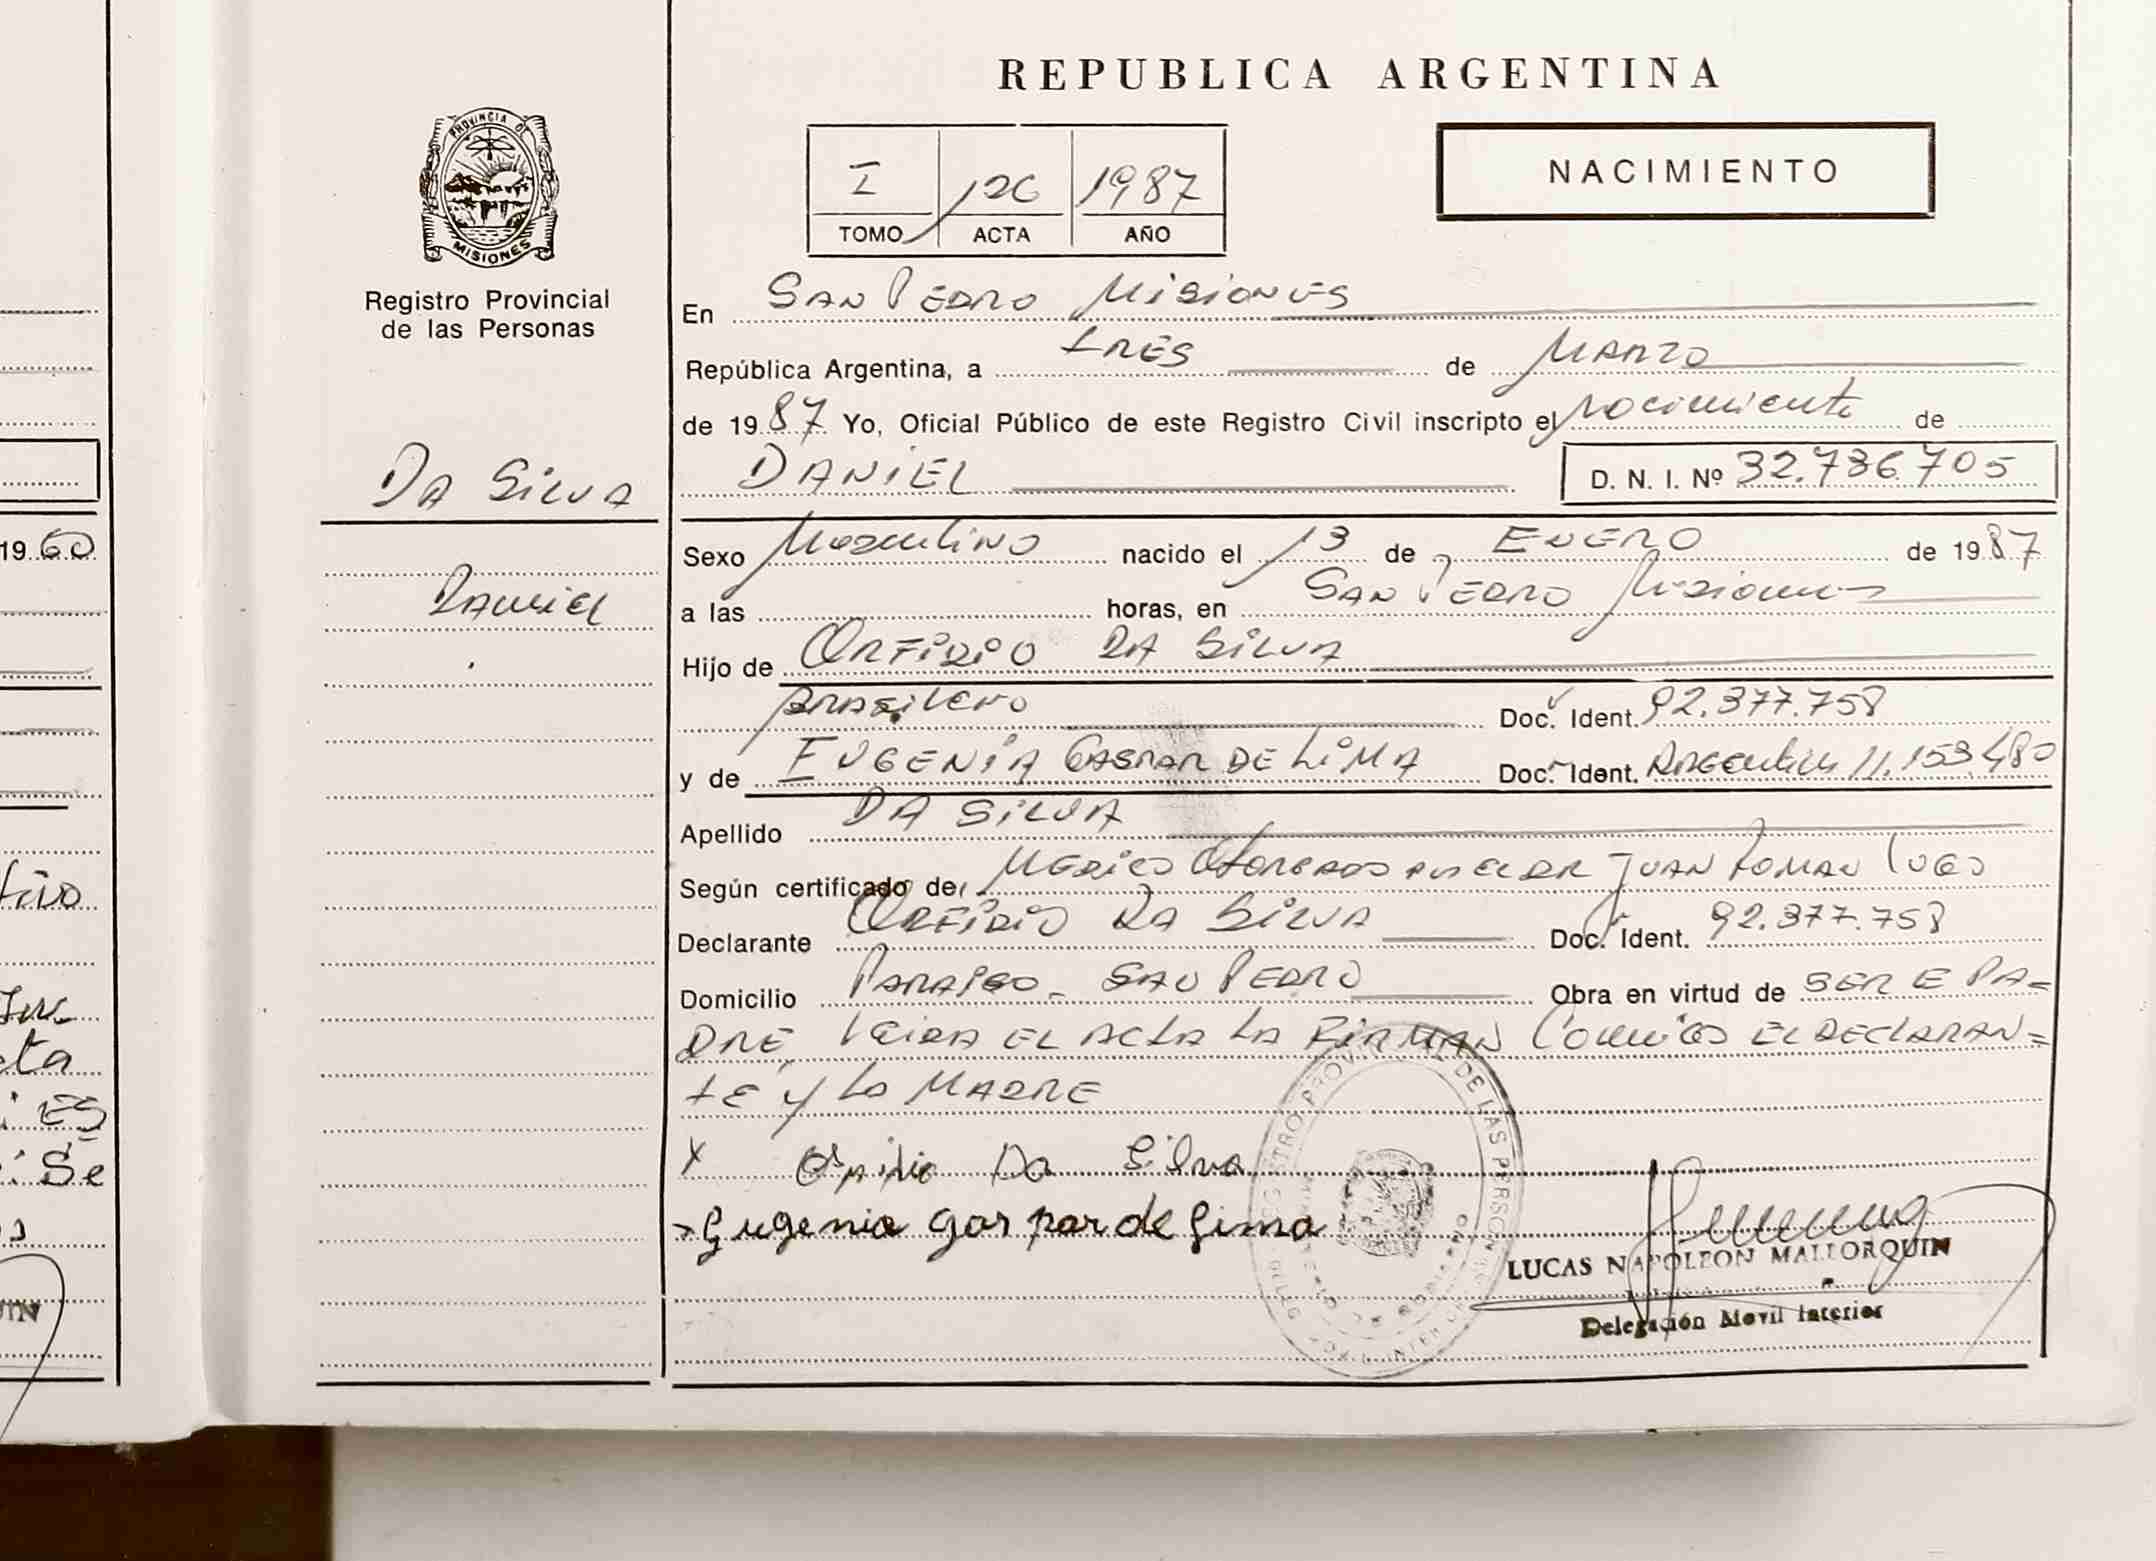 REPUBLICA ARGENTINA
NACIMIENTO
I 126 1987
TOMO ACTA AÑO
PROVINCIA DE
MISIONES
Registro Provincial
de las Personas
En San Pedro Misiones
República Argentina, a tres de Marzo
de 1987 Yo, Oficial Público de este Registro Civil inscripto el nacimiento de
DANIEL D. N. I. Nº 32.736.705
Da Silva
Daniel
Sexo Masculino nacido el 13 de Enero de 1987
a las horas, en San Pedro Misiones
Hijo de Orfidio Da Silva
brasilero Doc. Ident. 92.377.758
y de Eugenia Gaspar de Lima Doc. Ident. Argentina 11.153.480
Apellido Da Silva
Según certificado de Medico Otorgado por el Dr Juan Roman Lugo
Declarante Orfidio Da Silva Doc. Ident. 92.377.758
Domicilio Paraiso - San Pedro Obra en virtud de ser e pa=
dre, Leida el acta la firman conmigo el declaran=
te y la Madre
x Da Silva
Eugenia gaspar de Lima
LUCAS NAPOLEON MALLORQUIN
Delegación Movil Interior
1960
tivo
cta
ES
Se
UIN